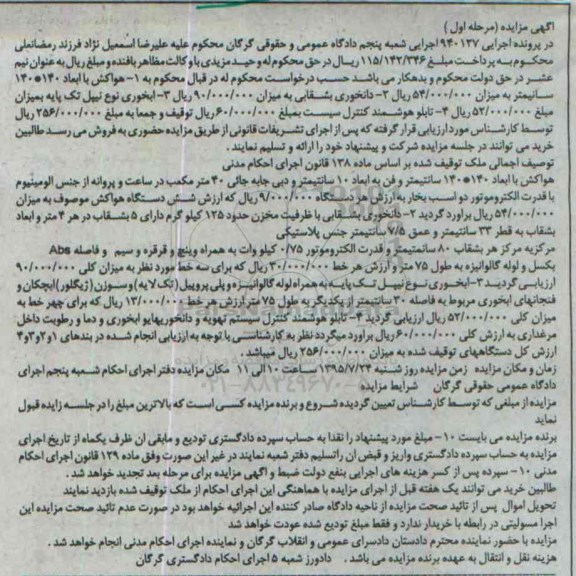 آگهی مزایده (مرحله اول )
در پرونده اجرایی ۹۴۰۱۳۷ اجرایی شعبه پنجم دادگاه عمومی و حقوقی گرگان محکوم علیه علیرضا اسمعیل نژاد فرزند رمضانعلی
محکوم به پرداخت مبلغ ۱۱۵/۱۴۲/۳۴۶ ریال در حق محکوم له وحید مزیدی با وکالت مظاهر بافنده و مبلغ ریال به عنوان نیم
عشر در حق دولت محکوم و بدهکار می باشد حسب درخواست محکوم له در قبال محکوم به ۱- هواکش با ابعاد ۱۴۰*۱۴۰
سانیمتر به میزان ۵۴/۰۰۰/۰۰۰ ریال ۲- دانخوری بشقابی به میزان ۹۰/۰۰۰/۰۰۰ ریال ۳- ابخوری نوع نیپل تک پایه بمیزان
مبلغ ۵۲/۰۰۰/۰۰۰ ریال ۴- تابلو هوشمند کنترل سیست بمبلغ ۶۰/۰۰۰/۰۰۰ ریال توقیف و جمعا به مبلغ ۲۵۶/۰۰۰/۰۰۰ ریال
توسط کارشناس مورد ارزیابی قرار گرفته که پس از اجرای تشریفات قانونی از طریق مزایده حضوری به فروش می رسد طالبین
خرید می توانند در جلسه مزایده شرکت و پیشنهاد خود را ارائه و تسلیم نمایند .
توصیف اجمالی ملک توقیف شده بر اساس ماده ۱۳۸ قانون اجرای احکام مدنی
هواکش با ابعاد ۱۴۰*۱۴۰ سانتیمتر و فن به ابعاد ۱۰ سانتیمتر و دبی جابه جائی ۴۰ متر مکعب در ساعت و پروانه از جنس الومینیوم
با قدرت الکتروموتور دو اسب بخار به ارزش هر دستگاه ۹/۰۰۰/۰۰۰ ریال که ارزش شش دستگاه هواکش موصوف به میزان
۵۴/۰۰۰/۰۰۰ ریال براورد گردید ۲- دانخوری بشقابی با ظرفیت مخزن حدود ۱۲۵ کیلو گرم دارای ۵ بشقاب در هر ۴ متر و ابعاد
بشقاب به قطر ۳۳ سانتیمتر و عمق ۷/۵ سانتیمتر جنس پلاستیکی
مرکزیه مرکز هر بشقاب ۸۰ سانتمیتر و قدرت الکتروموتور ۰/۷۵ کیلو وات به همراه وینچ و قرقره و سیم و فاصله Abs
بکسل و لوله گالوانیزه به طول ۷۵ متر و ارزش هر خط ۳۰/۰۰۰/۰۰۰ ریال که برای سه خط مورد نظر به میزان کلی ۹۰/۰۰۰/۰۰۰
ارزیابی گردید ۳- ابخوری نوع نیپل تک پایه به همراه لوله گالوانیزه و پلی پروپیل (تک لایه) و سوزن (ژیگلور) ابچکان و
فنجانهای ابخوری مربوط به فاصله ۳۰ سانتیمتر از یکدیگر به طول ۷۵ متر ارزش هر خط ۱۳/۰۰۰/۰۰۰ ریال که برای چهر خط به
میزان کلی ۵۲/۰۰۰/۰۰۰ ریال ارزیابی گردید ۴- تابلو هوشمند کنترل سیستم تهویه و دانخوریهاو ابخوری و دما و رطوبت داخل
مرغداری به ارزش کلی ۶۰/۰۰۰/۰۰۰ ریال براورد میگردد نظر به کارشناسی با توجه به ارزیابی انجام شده در بندهای ۱و۲و۳و۴
ارزش کل دستگاههای توقیف شده به میزان ۲۵۶/۰۰۰/۰۰۰ ریال میباشد .
زمان و مکان مزایده زمن مزایده روز شنبه ۱۳۹۵/۷/۲۴ ساعت ۱۰ الی ۱۱ مکان مزایده دفتر اجرای احکام شعبه پنجم اجرای
دادگاه عمومی حقوقی گرگان شرایط مزایده
مزایده از مبلغی که توسط کارشناس تعیین گردیده شروع و برنده مزایده کسی است که بالاترین مبلغ را در جلسه زایده قبول
نماید
برنده مزایده می بایست ۱۰- مبلغ مورد پیشنهاد را نقدا به حساب سپرده دادگستری تودیع و مابقی ان ظرف یکماه از تاریخ اجرای
مزایده به حساب سپرده دادگستری واریز و قبض ان راتسلیم دفتر شعبه نمایند در غیر این صورت وفق ماده ۱۲۹ قانون اجرای احکام
مدنی ۱۰- سپرده پس از کسر هزینه های اجرایی بنفع دولت ضبط و اگهی مزایده برای مرحله بعد تجدید خواهد شد .
طالبین خرید می توانند یک هفته قبل از اجرای مزایده با هماهنگی این اجرای احکام از ملک توقیف شده بازدید نمایند
تحویل اموال پس از تائید صحت مزایده از ناحیه دادگاه صادر کننده این اجرائیه خواهد بود در صورت عدم تائید صحت مزایده این
اجرا مسولیتی در رابطه با خریدار ندارد و فقط مبلغ تودیع شده عودت خواهد شد
مزایده با حضور نماینده محترم دادستان دادسرای عمومی و انقلاب گرگان و نماینده اجرای احکام مدنی انجام خواهد شد .
هزینه نقل و انتقال به عهده برنده مزایده می باشد . دادورز شعبه ۵ اجرای احکام دادگستری گرگان